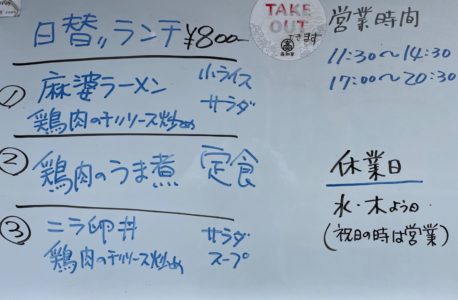 日替ランチ ¥800
① 麻婆ラーメン 小ライス サラダ
鶏肉のチリソース炒め
② 鶏肉のうま煮 定食
③ ニラ卵丼 サラダ
鶏肉のチリソース炒め スープ
TAKE
OUT
できます
営業時間
11:30〜14:30
17:00〜20:30
休業日
水・木よう日
(祝日の時は営業)